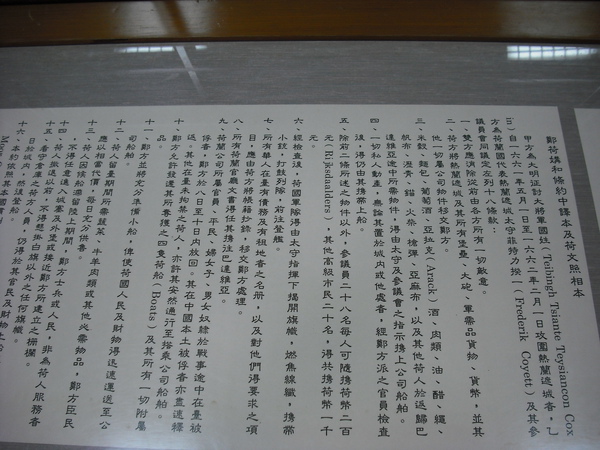 鄭荷媾和條約中譯本及荷文照相本
甲方為大明征討大將軍國姓（Teibingh Tsiante Teysiancon Cox
in）自一六六一年五月一日至一六六二年二月一日攻圍熱蘭遮城者，乙
方為荷蘭國代表熱蘭遮城太守菲特力揆一（Frederik Coyett）及其參
議員會同議定左列十八條款：
一、雙方應消除從前由各方所有一切敵意。
二、荷方將熱蘭遮城及其所有堡壘、大砲、軍需品貨物、貨幣，並其
他一切屬公司物件移交鄭方。
三、米穀、麵包、葡萄酒、亞拉克（Arack）酒、肉類、油、醋、繩、
帆布、瀝青、錨、火柴、槍彈、亞麻布，以及其他荷人於返歸巴
達維亞途中所需物件，得由太守及參議會之指示攜上公司船舶。
四、一切私人動產，無論其置於城內或他處者，經鄭方派之官員檢查
後，得仍由其攜帶上船。
五、除前二條所述之物件以外，參議員二十八名每人可隨攜荷幣二百
元（Rijksdaalders），其他高級市民二十名，得共攜荷幣一千
元。
六、經檢查後，荷國軍隊得由太守指揮下揭開旗幟，燃焦線織，攜帶
小銃，打鼓列隊，前往登艦。
七、所有華人在臺有債務及有租地者之名冊，以及對他們得要求之項
目，應由荷方將帳籍抄錄，移交鄭方處理。
八、所有荷蘭官廳文書得任其攜往巴達維亞。
九、荷蘭公司所屬官員、平民、婦女子、男女奴隸於戰事途中在臺被
俘者，鄭方於八日至十日內放回。其在中國本土被俘者亦盡速釋
返。其他在臺未拘禁之荷人，亦許其安然通行至搭乘公司船舶。
十、鄭方允許發還其所奪獲之四隻荷船（Boats）及其所有一切附屬
品。
十一、鄭方並將充分準備小船，俾便荷國人民及財物得迅速運送至公
司船舶。
十二、荷人留臺期間所需蔬菜、牛羊肉類或其他必需物品，鄭方臣民
應以相當代價，每日充分供售。
十三、荷人因候船滯留陸上期間，鄭方士兵或人民，非為荷人服務者
，不得任意進入城塞及外堡或接近鄭方所建立之柵欄。
十四、荷人撤退以前，不得懸掛白旗以外之任何旗幟。
十五、看守倉庫之荷方人員，仍得於其官民及財物上
日於城內，然後登船。
十六、本約依照其本國